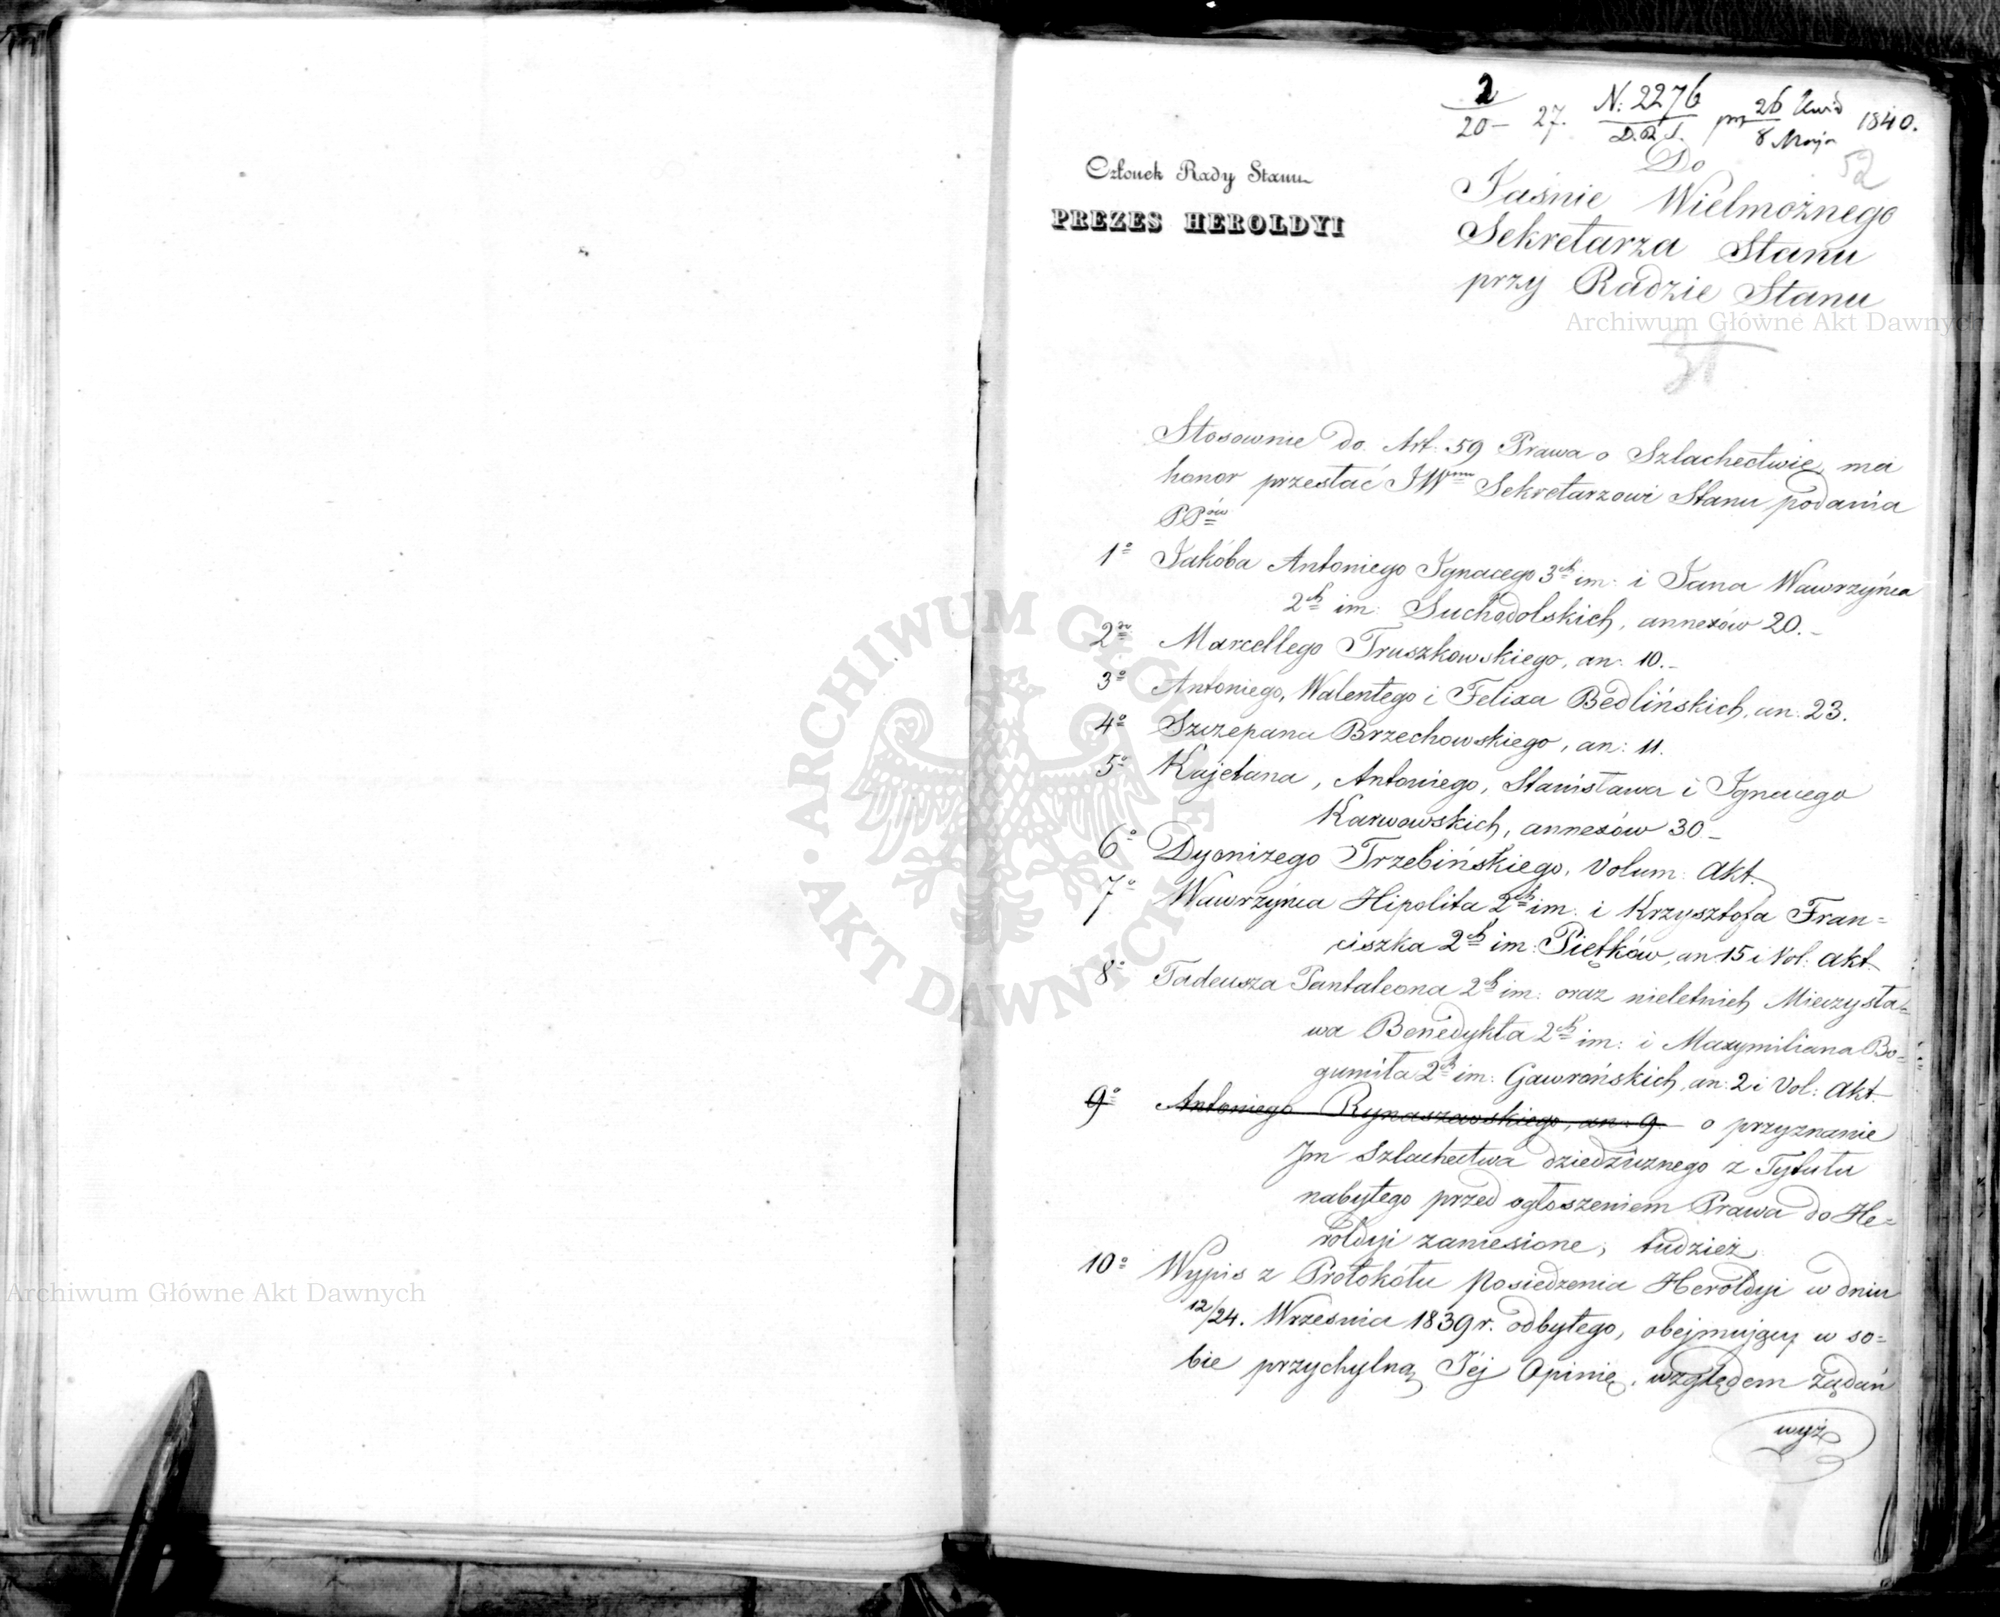 2/20 – 27. N: 2276 26 Kwiet 1840.
D.R.S. 8 Maja
52
Członek Rady Stanu
PREZES HEROLDYI
Do
Jaśnie Wielmożnego
Sekretarza Stanu
przy Radzie Stanu
Stosownie do Art: 59 Prawa o Szlachectwie, ma
honor przesłać JWmu Sekretarzowi Stanu podania
PPów
1o Jakóba Antoniego Ignacego 3ch im: i Jana Wawrzyńca
2ch im: Suchodolskich, annexów 20.–
2do Marcellego Truszkowskiego, an: 10.–
3o Antoniego, Walentego i Felixa Bedlińskich, an: 23.
4o Szczepana Brzechowskiego, an: 11.
5o Kajetana, Antoniego, Stanisława i Ignacego
Karwowskich, annexów 30–
6o Dyonizego Trzebińskiego, Volum: Akt.
7o Wawrzyńca Hipolita 2ch im: i Krzysztofa Fran=
ciszka 2ch im: Piętków, an 15 i Vol: Akt.
8o Tadeusza Pantaleona 2ch im: oraz nieletnich Mieczysła=
wa Benedykta 2ch im: i Maxymiliana Bo=
gumiła 2ch im: Gawrońskich, an: 2 i Vol: Akt.
9o Antoniego Rynaszewskiego, an: 9. – o przyznanie
Im Szlachectwa dziedzicznego z Tytułu
nabytego przed ogłoszeniem Prawa do He=
roldyi zaniesione; tudzież
10o Wypis z Protokółu Posiedzenia Heroldyi w dniu
12/24. Września 1839 r. odbytego, obejmujący w so=
bie przychylną Jéj Opinię, względem żądań
wyż
Archiwum Główne Akt Dawnych
ARCHIWUM GŁÓWNE AKT DAWNYCH
Archiwum Główne Akt Dawnych